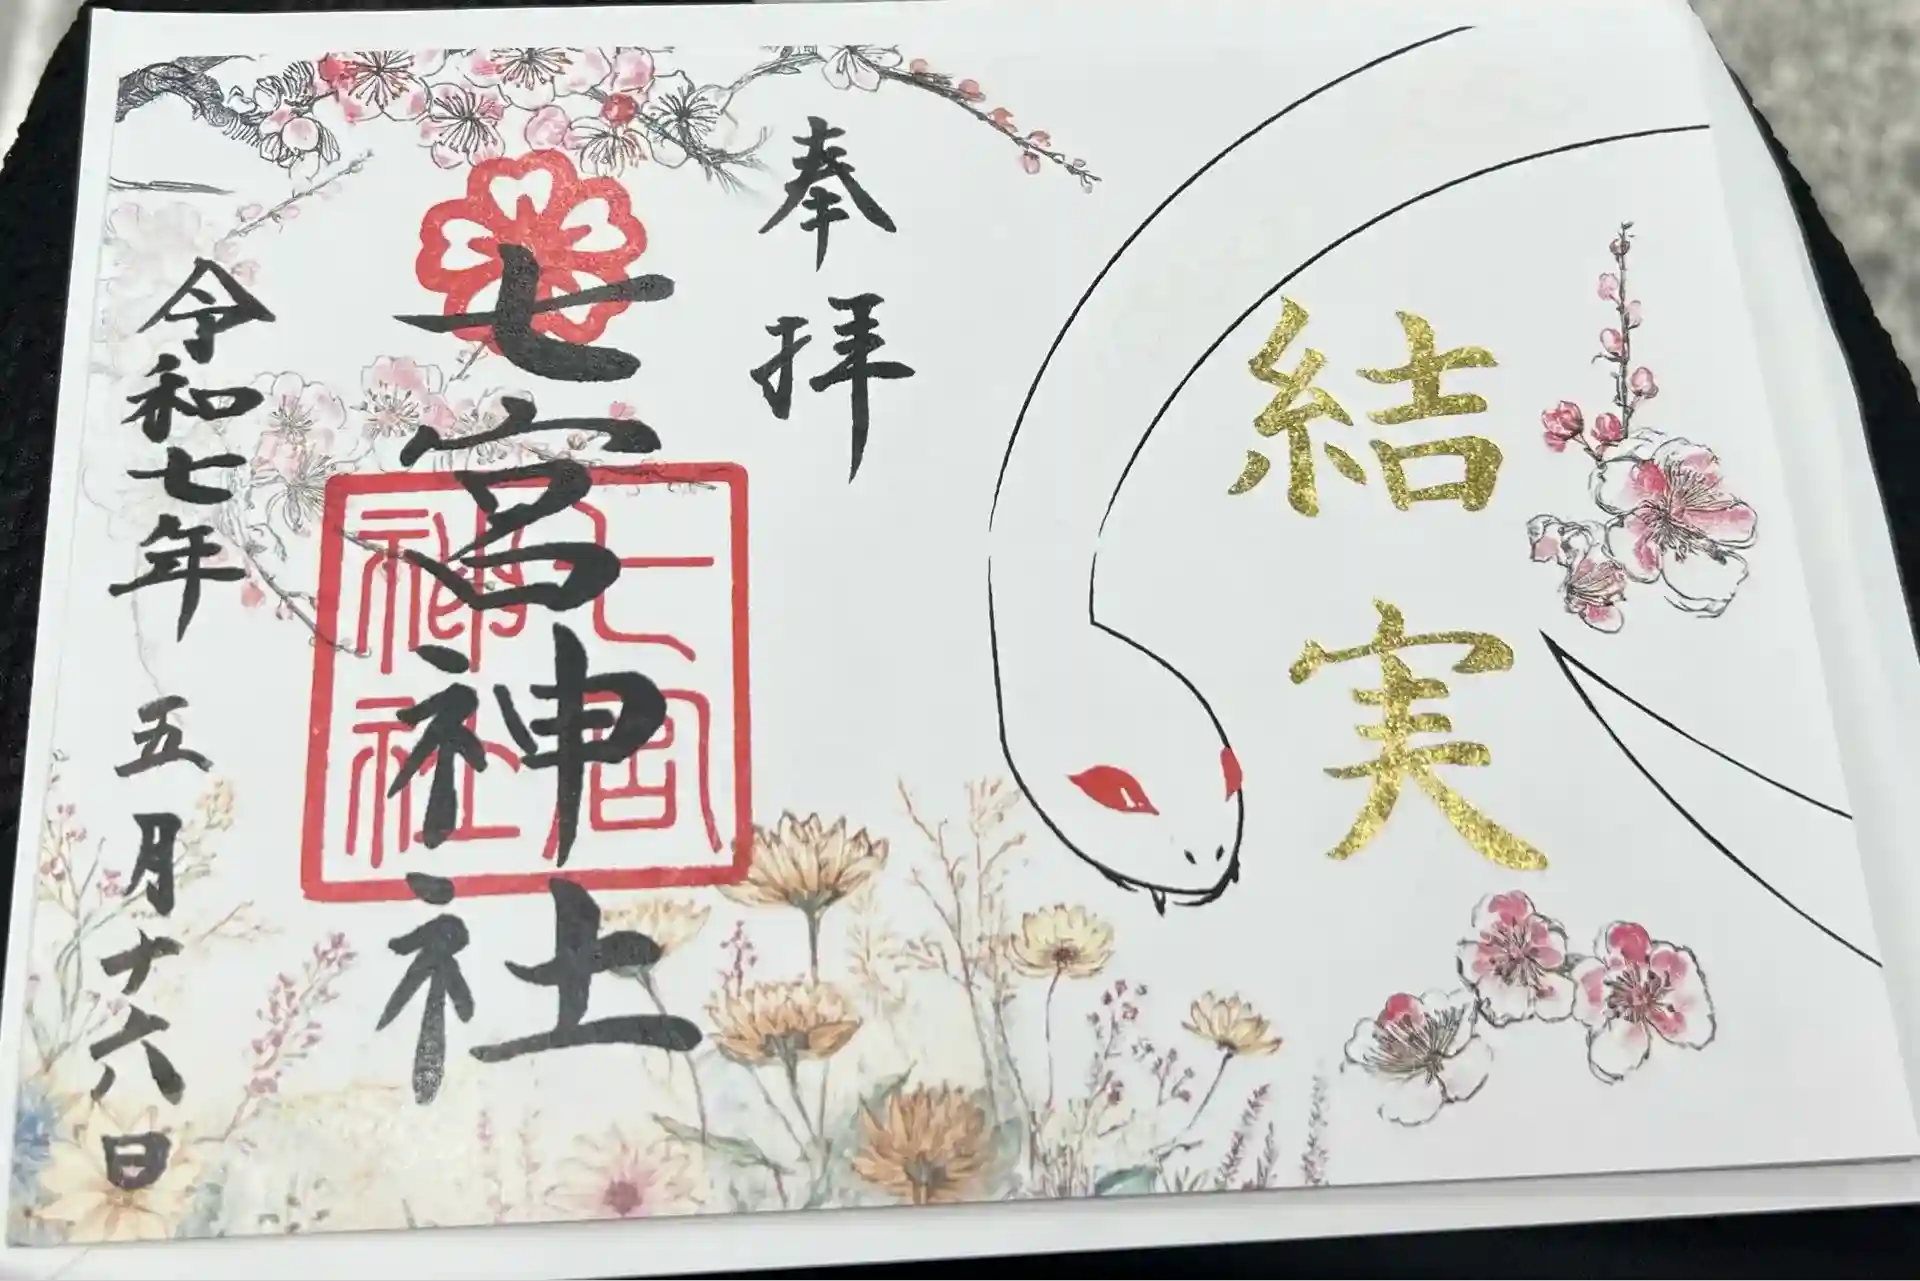 結実
奉拝
七宮神社
七宮
神社
令和七年五月十六日